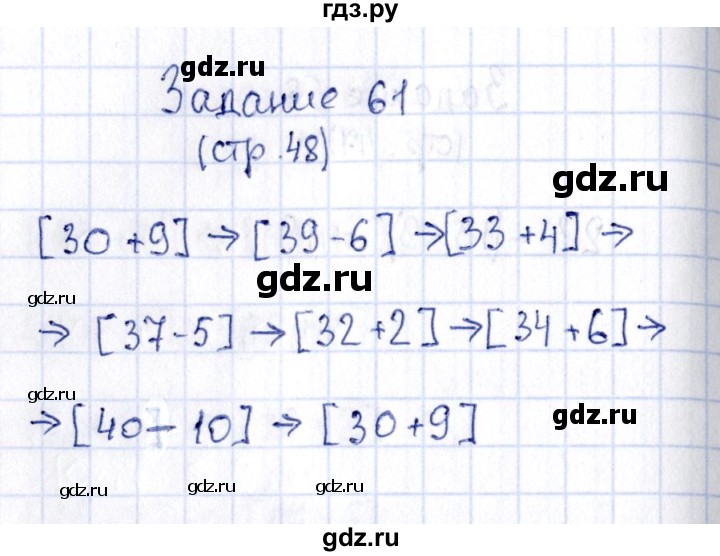 гдз.ру
gdz.ru
Задание 61
(стр. 48)
gdz.ru
[30+9] → [39-6] → [33+4] →
gdz.ru
gdz.ru
→ [37-5] → [32+2] → [34+6] →
gdz.ru
gdz.ru
→ [40-10] → [30+9]
gdz.ru gdz.ru gdz.ru
gdz.ru